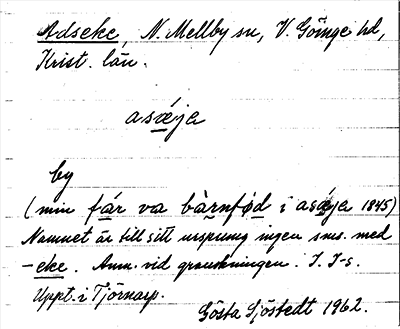 Adseke, N. Mellby sn, V. Göinge hd,
Krist. län.
asǽja
by
(min fár va bàrnfød i asǽja 1845)
Namnet är till sitt ursprung ingen sms. med
-eke. Anm. vid granskningen. I. I-s.
Uppt. i Tjörnarp.
Gösta Sjöstedt 1962.